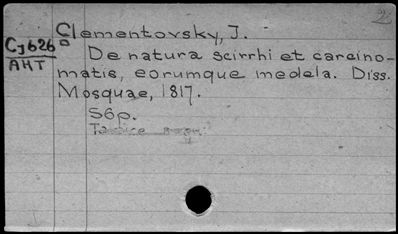 2
Clementovsky, J.
CJ626
AHT
De natura scirrhi et carcino-
matis, eorumque medela. Diss.
Mosquae, 1817.
56p.